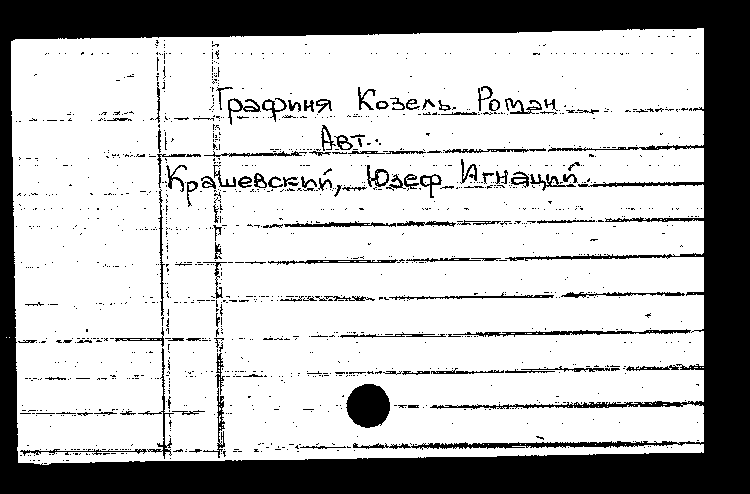 Графиня Козель. Роман.
Авт.:
Крашевский, Юзеф Игнаций.